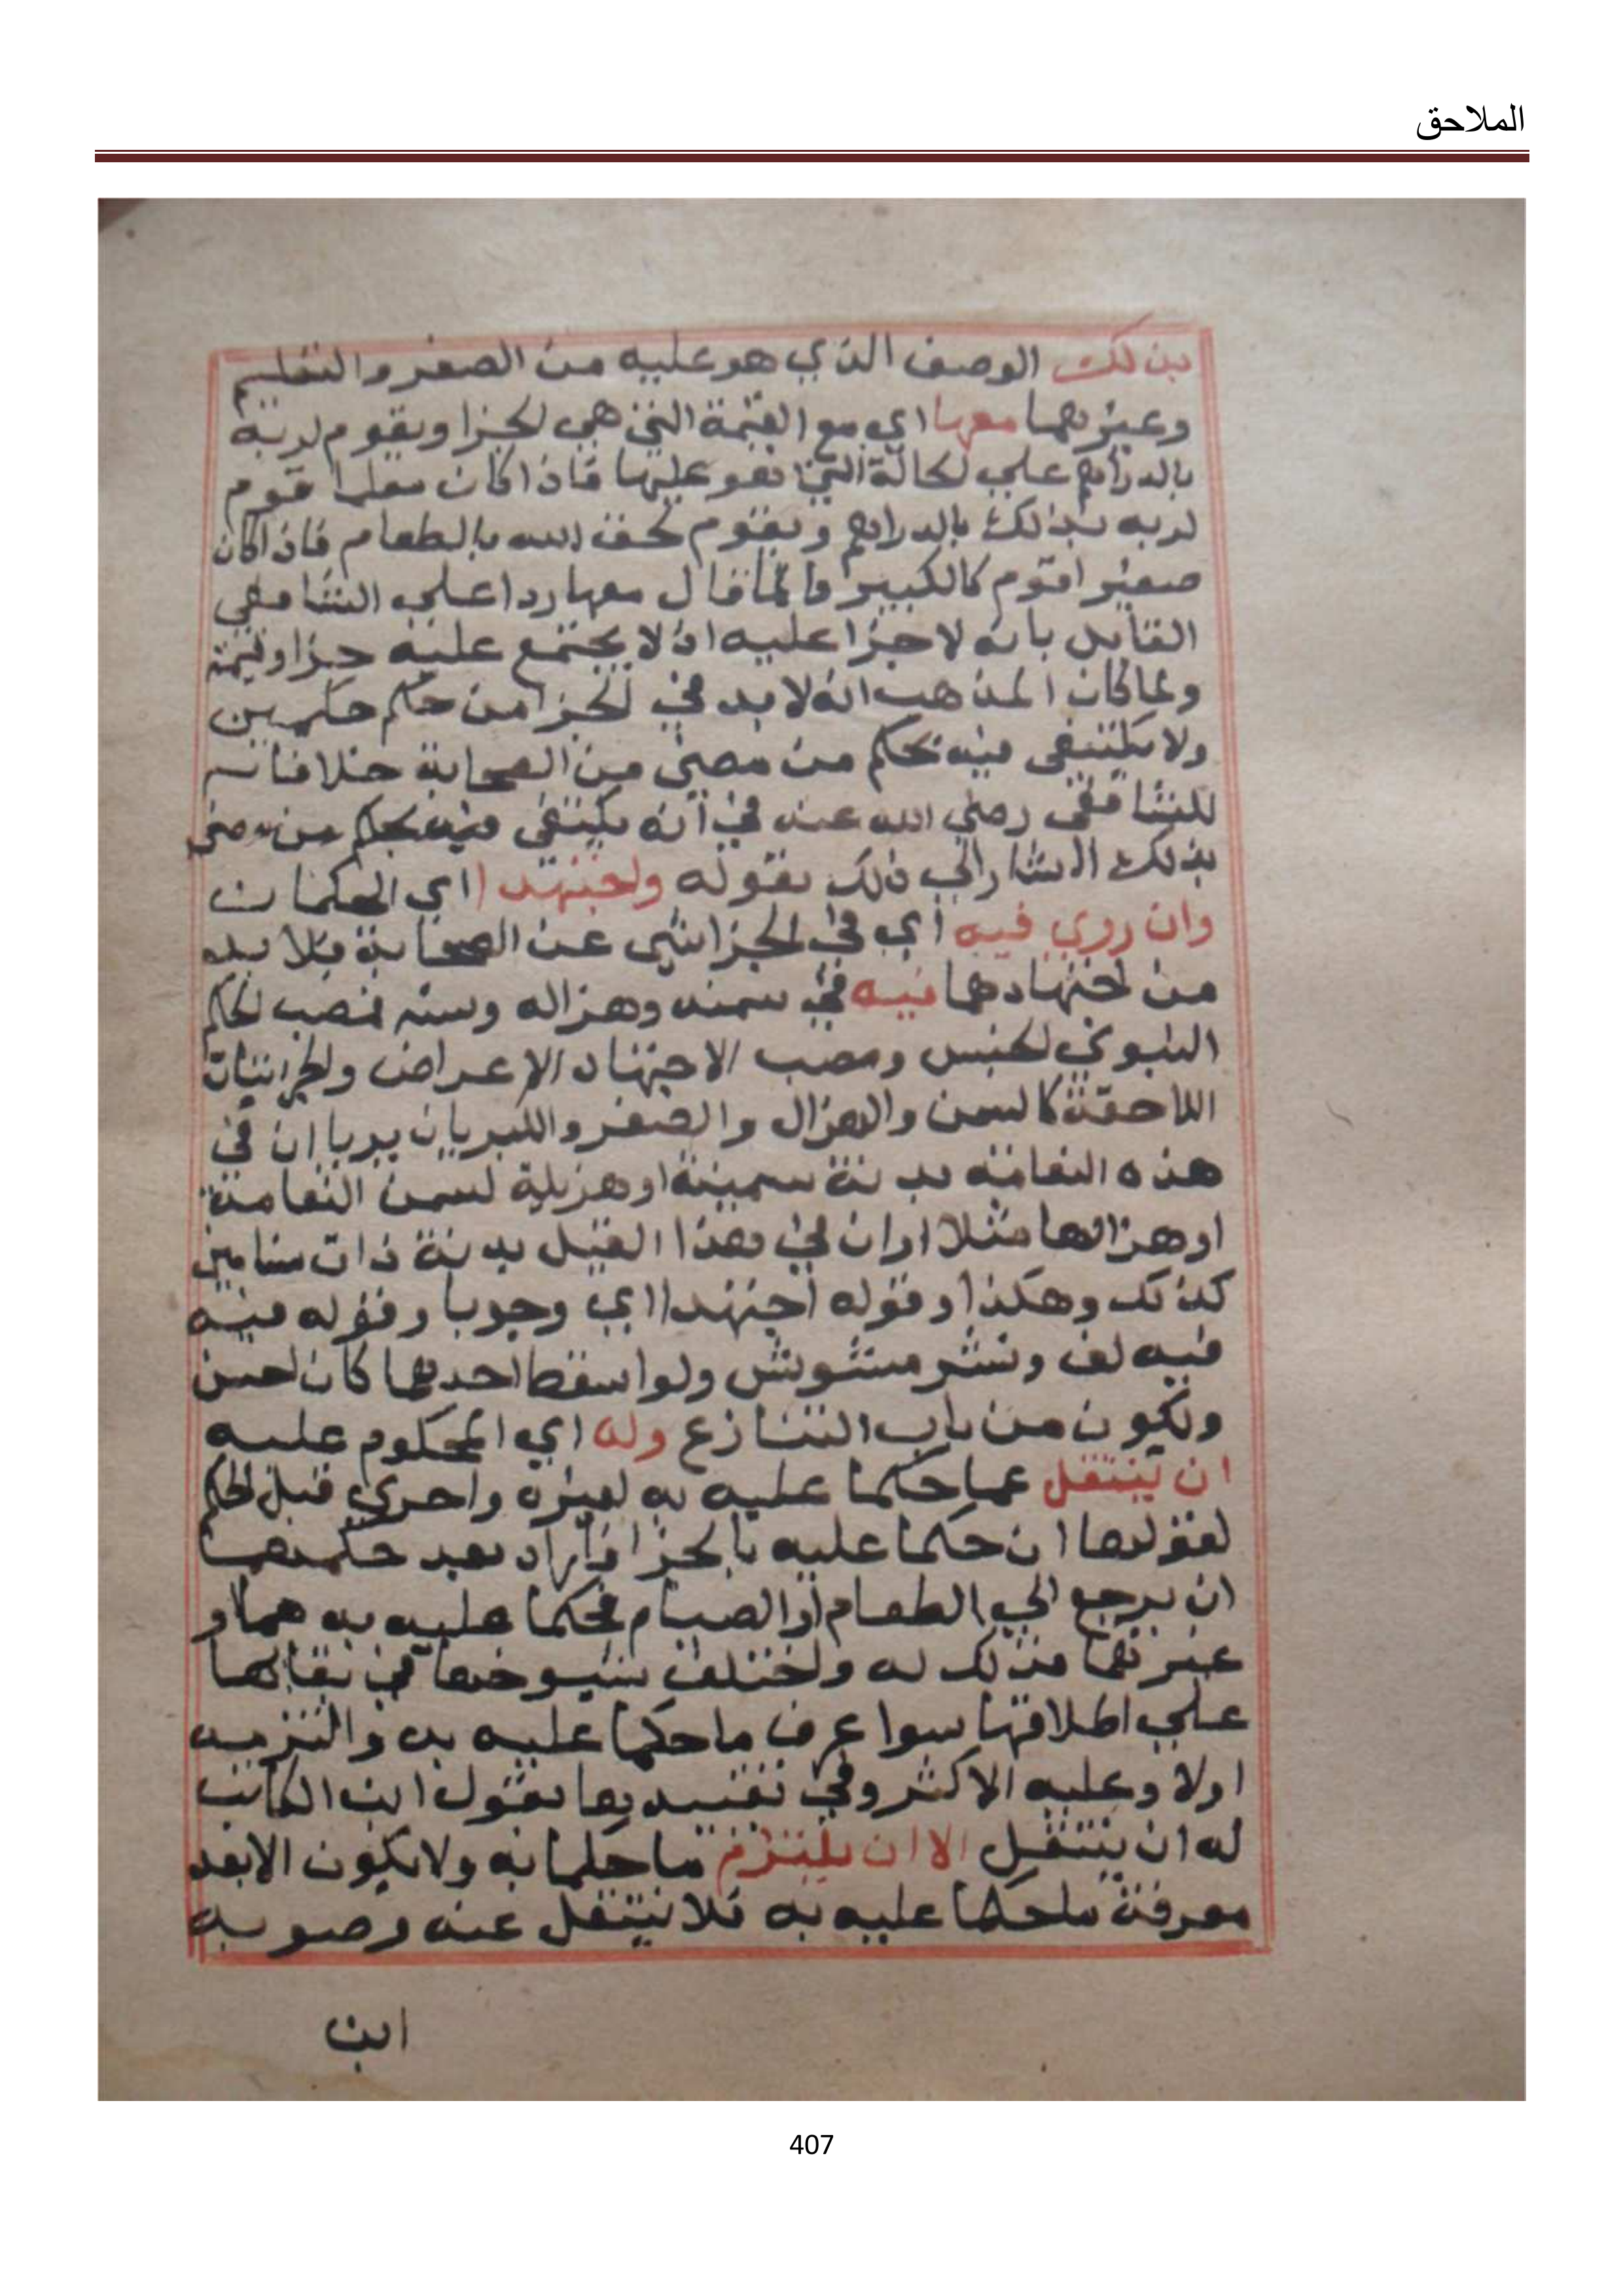 الملاحق
بذلك الوصف الذي هو عليه من الصغر والتعليم
وغيرهما معها اي مع القيمة التي هي لجزا ويقوم لربه
بالدراهم علي لحالة التي هو عليها فاذا كان معلما قوم
لربه بذلك بالدراهم ويقوم لحق الله بالطعام فاذا كان
صغيرا قوم كالكبير وانما قال معها ردا علي الشافعي
القايل بانه لا جزا عليه اذ لا يجتمع عليه جزا وقيمة
ولما كان المذهب انه لا بد في لجزا من حكم حكمين
ولا يكتفي فيه بحكم من مضي من الصحابة خلافا
للشافعي رضي الله عنه في انه يكتفي فيه بحكم من مضي
بذلك اشار الي ذلك بقوله واجتهدا اي الحكمان
وان روي فيه اي في الجزا شي عن الصحابة فلا بد
من اجتهادهما فيه في سمنه وهزاله وسنه فنصب لحكم
النبوي لجنس ومصب الاجتهاد الاعراض والجزئيات
اللاحقة كالسمن والهزال والصغر والكبر بان يريا ان في
هذه النعامة بدنة سمينة او هزيلة لسمن النعامة
او هزالها مثلا او ان في هذا الفيل بدنة ذات سنامين
كذلك وهكذا وقوله اجتهدا اي وجوبا وقوله فيه
فيه لف ونشر مشوش ولو اسقط احدهما كان احسن
ويكون من باب التنازع وله اي المحكوم عليه
ان ينتقل عما حكما عليه به لغيره واحري قبل لحكم
لقولها ان حكما عليه بالجزا فاراد بعد حكمهما
ان يرجع الي الطعام او الصيام فحكما عليه به هما او
غيرهما فذلك له واختلف شيوخها في بقائها
علي اطلاقها سوا عرف ما حكما عليه به والتزمه
اولا وعليه الاكثر وفي تقييدها بقول ابن الكاتب
له ان ينتقل الا ان يلتزم ما حكما به ولا يكون الا بعد
معرفة ما حكما عليه به فلا ينتقل عنه وصوبه
ابن
407